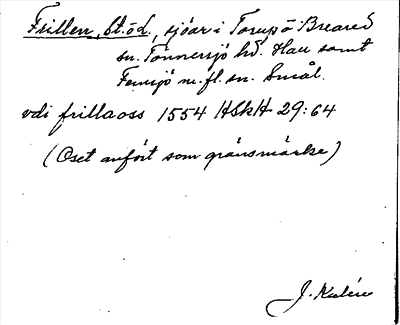 Frillen, St. o. d., sjöar i Torup o Breared
sn. Tönnersjö hd. Hall samt
Femsjö m.fl. sn. Smål.
vdi frillaoss 1554 HSkH 29:64
(Oset anfört som gränsmärke)
J. Kalén